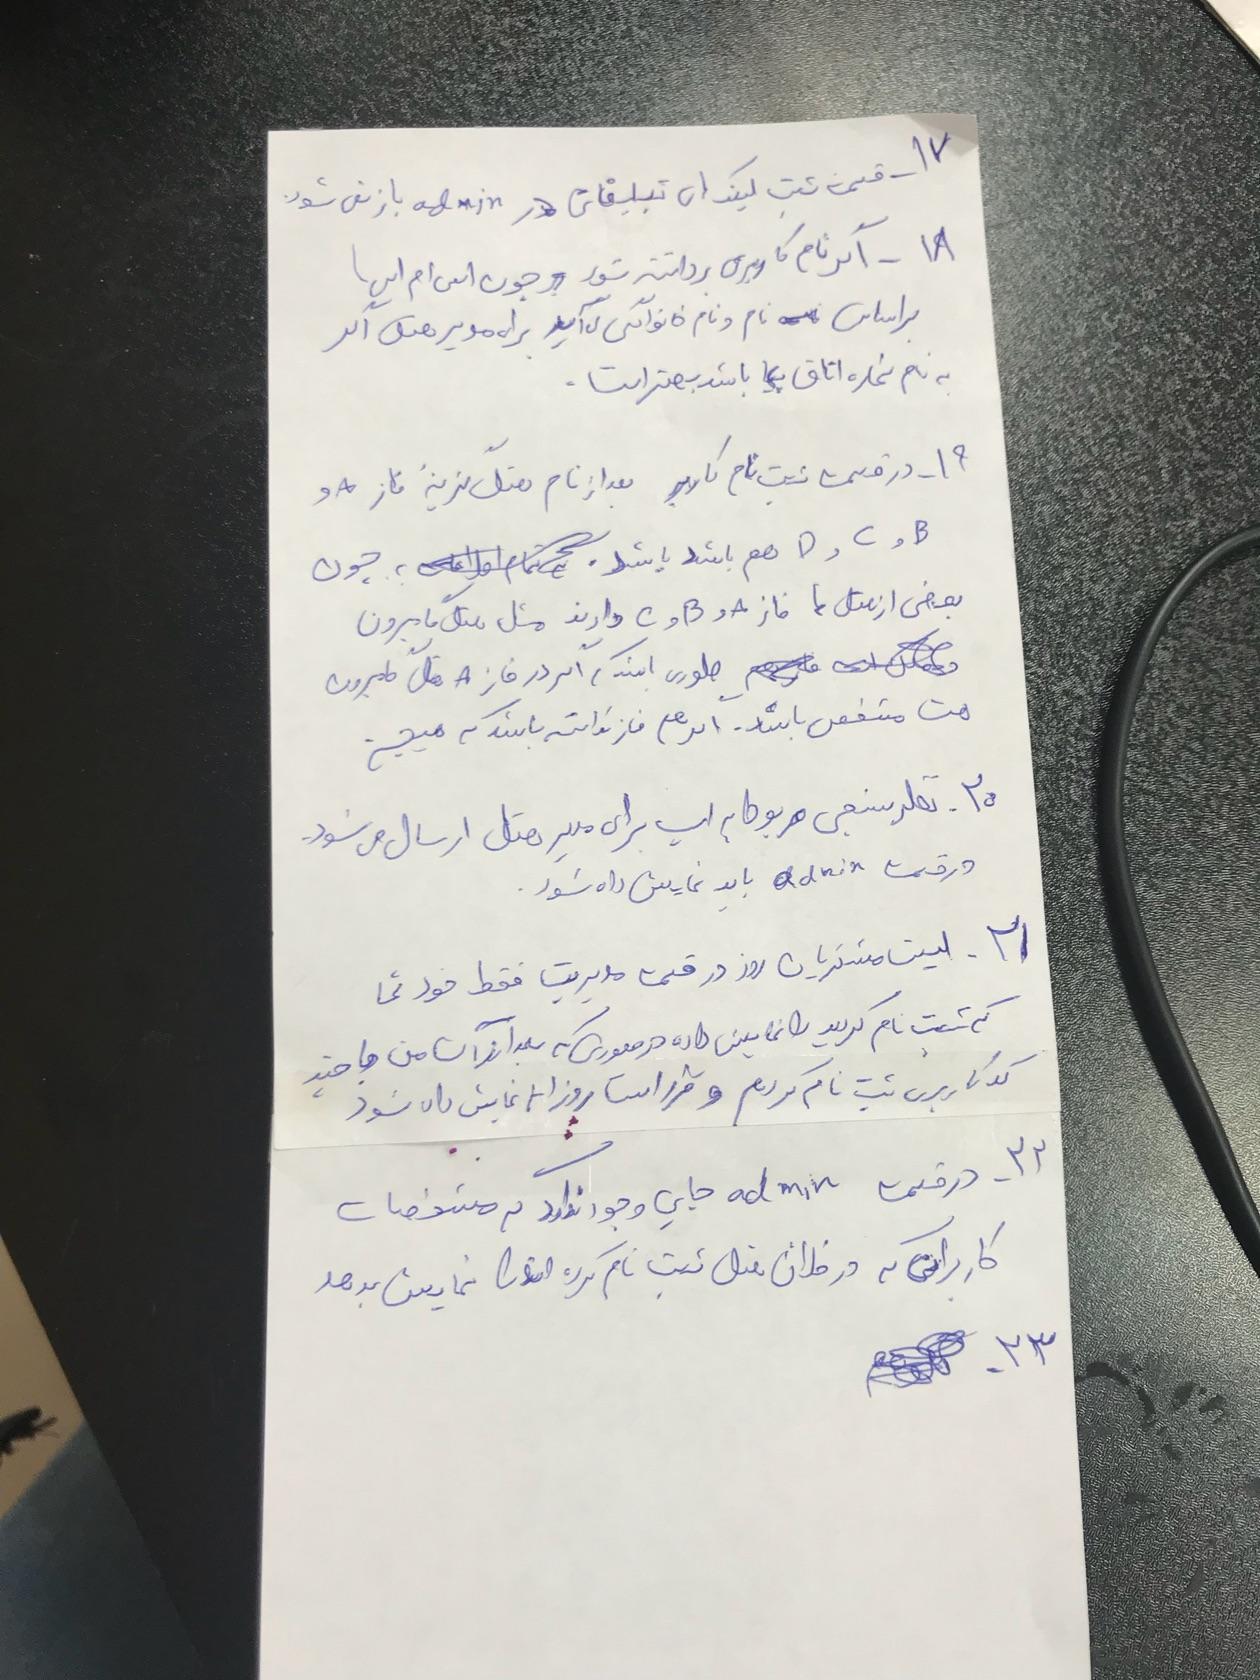 ۱۷- قسمت ثبت لینک های تبلیغاتی در admin باز نمی شود.
۱۸- اگر نام کاربری برداشته شود و چون اس ام اس ها
براساس نام و نام خانوادگی می آید برای مدیر هتل اگر
به نام شماره اتاق باشد بهتر است.
۱۹- در قسمت ثبت نام کاربر بعد از نام هتل گزینهٔ فاز A و
B و C و D هم باشد باشد. چون
بعضی از هتل ها فاز A و B و C دارند مثل هتل
طوری باشد که اگر در فاز A هتل
هست مشخص باشد. اگر هم فاز نداشته باشد که هیچ
۲۰- نظرسنجی مربوط به اپ برای مدیر هتل ارسال می شود.
در قسمت admin باید نمایش داده شود.
۲۱- لیست مشتریان روز در قسمت مدیریت فقط خود شما
که ثبت نام کردید را نمایش داده در صورتی که بعد از آن من با چند
کد کاربری ثبت نام کردم و قرار است روزانه نمایش داده شود
۲۲- در قسمت admin جایی وجود ندارد که مشخصات
کاربرانی که در فلان هتل ثبت نام کرده اند را نمایش بدهد
۲۳-